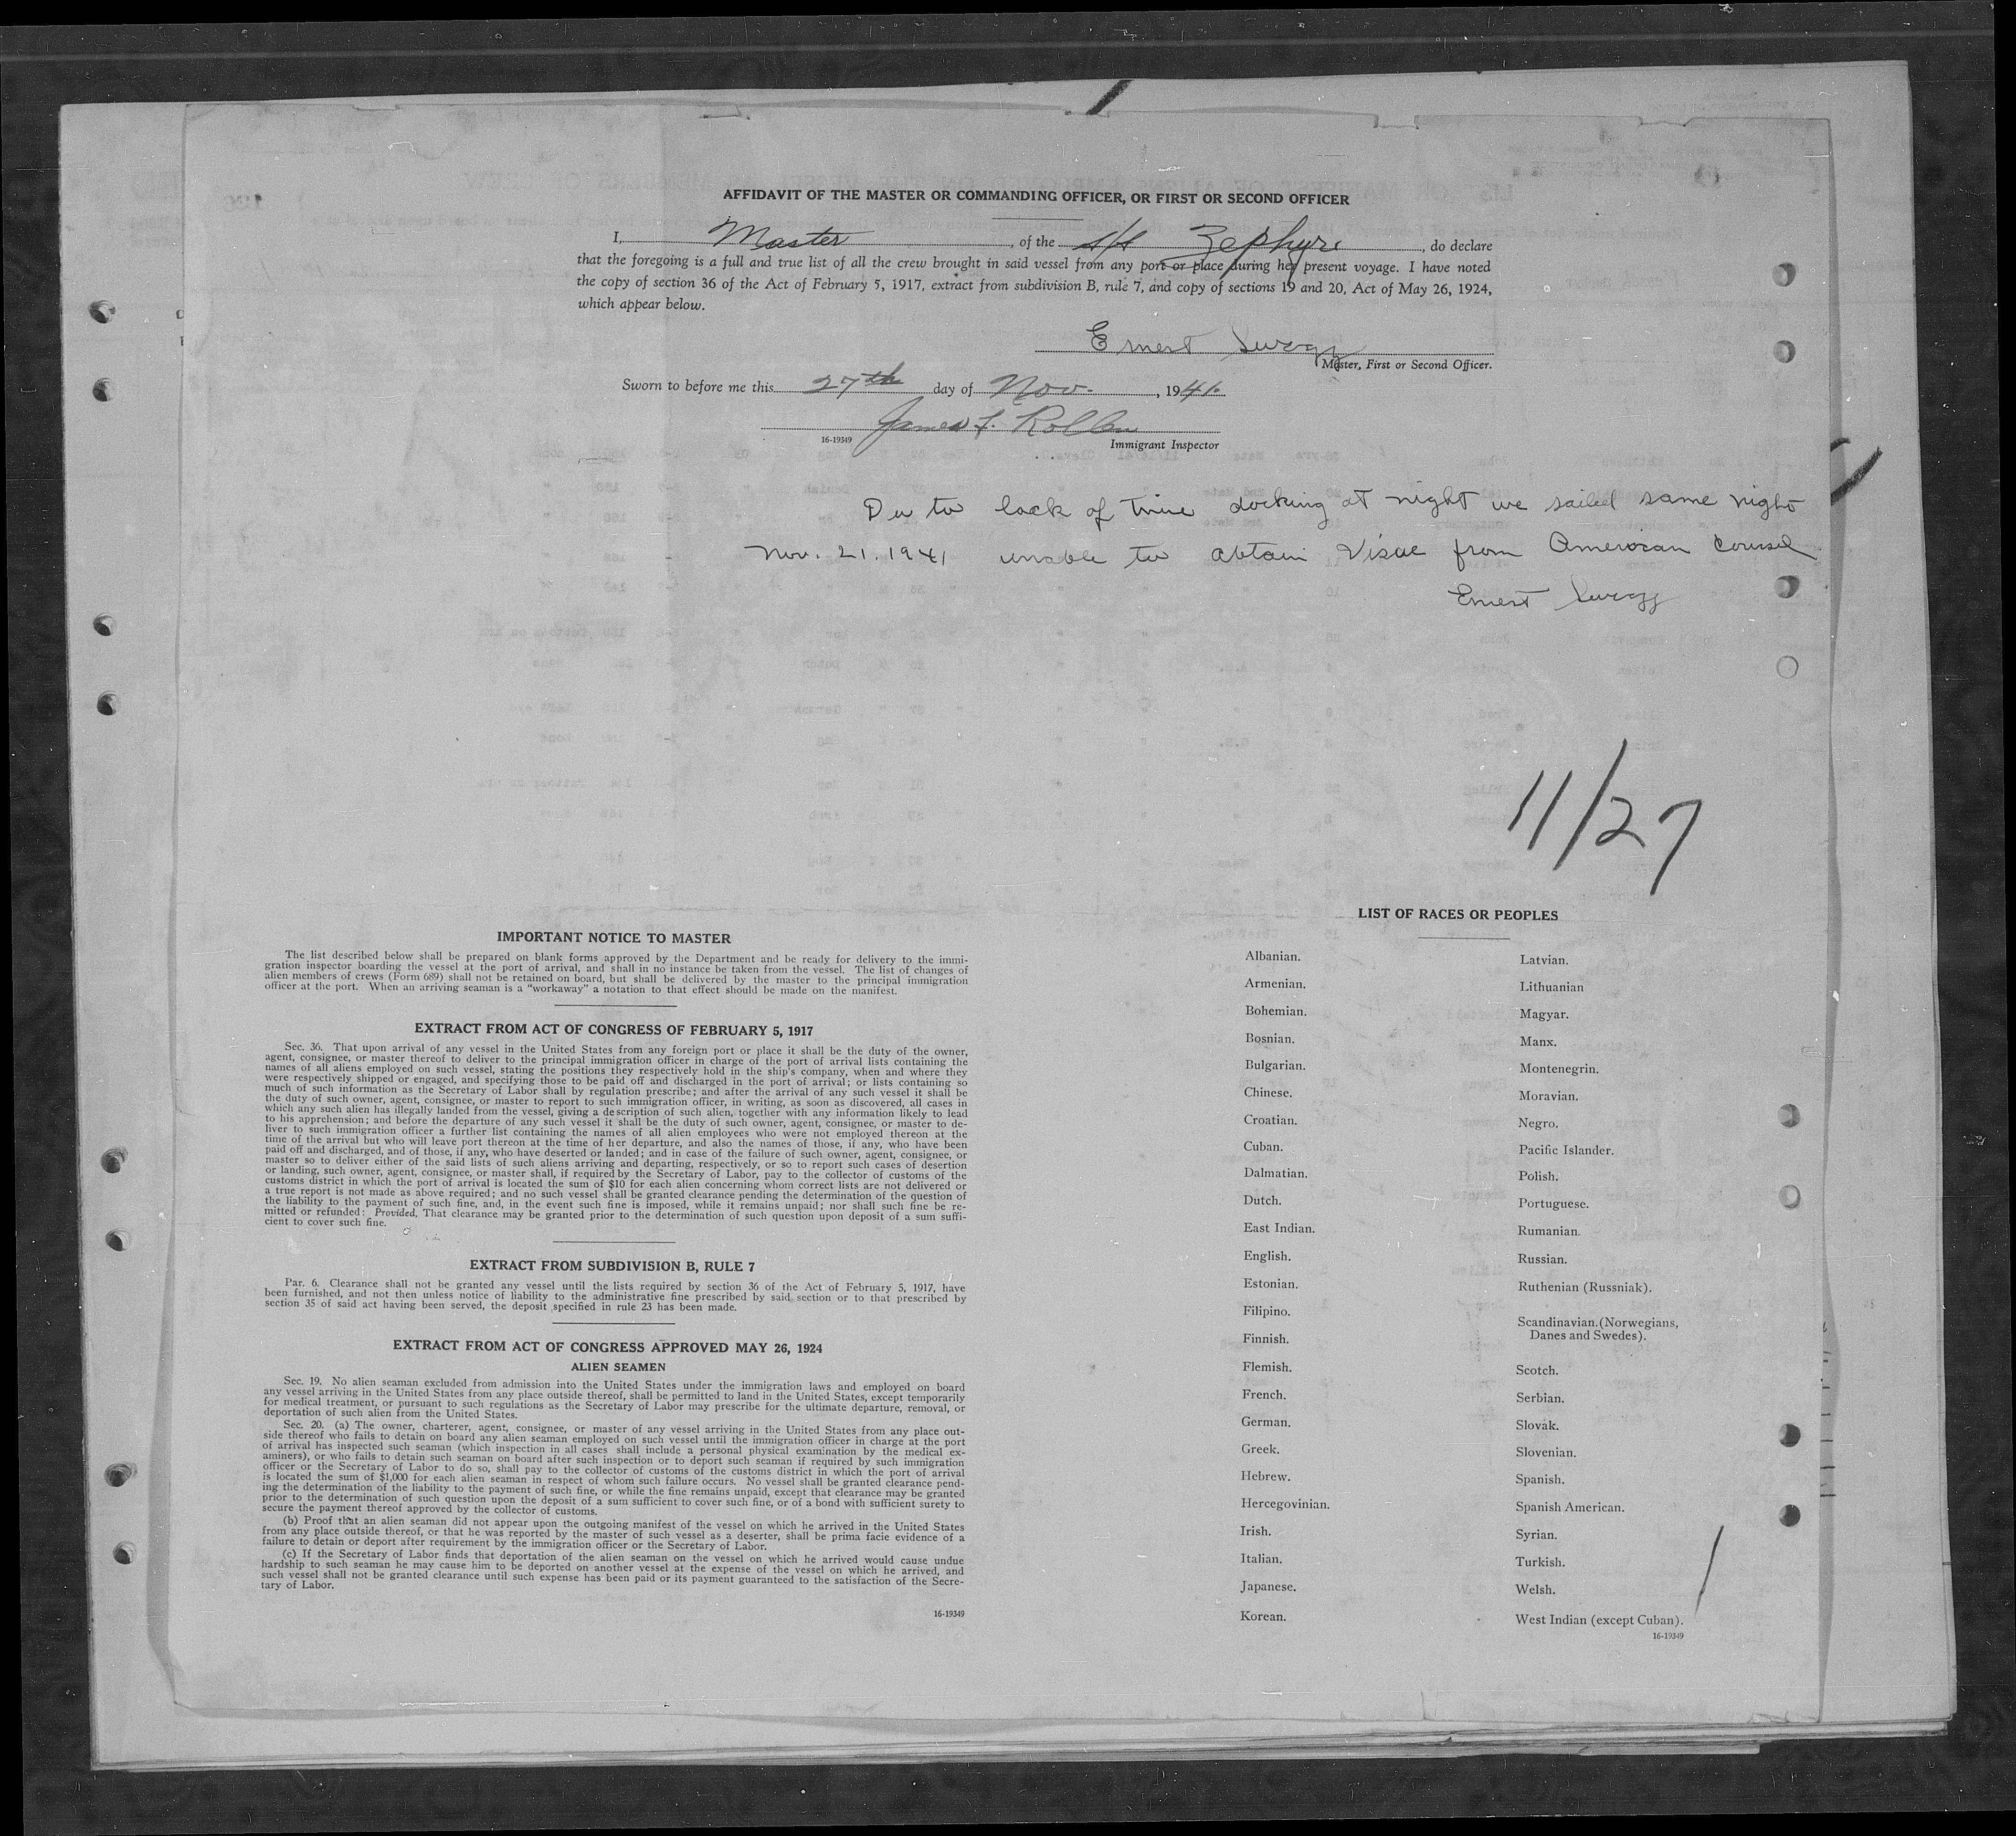 AFFIDAVIT OF THE MASTER OR COMMANDING OFFICER, OR FIRST OR SECOND OFFICER
I, Master, of the s/s Zephyr, do declare
that the foregoing is a full and true list of all the crew brought in said vessel from any port or place during her present voyage. I have noted
the copy of section 36 of the Act of February 5, 1917, extract from subdivision B, rule 7, and copy of sections 19 and 20, Act of May 26, 1924,
which appear below.
Ernest
Master, First or Second Officer.
Sworn to before me this 27th day of Nov., 1941.
James F.
16-19349 Immigrant Inspector
Du to lack of time docking at night we sailed same night
Nov. 21. 1941 unable to obtain Visae from American Counsel
Ernest
11/27
IMPORTANT NOTICE TO MASTER
The list described below shall be prepared on blank forms approved by the Department and be ready for delivery to the immi-
gration inspector boarding the vessel at the port of arrival, and shall in no instance be taken from the vessel. The list of changes of
alien members of crews (Form 689) shall not be retained on board, but shall be delivered by the master to the principal immigration
officer at the port. When an arriving seaman is a "workaway" a notation to that effect should be made on the manifest.
EXTRACT FROM ACT OF CONGRESS OF FEBRUARY 5, 1917
Sec. 36. That upon arrival of any vessel in the United States from any foreign port or place it shall be the duty of the owner,
agent, consignee, or master thereof to deliver to the principal immigration officer in charge of the port of arrival lists containing the
names of all aliens employed on such vessel, stating the positions they respectively hold in the ship's company, when and where they
were respectively shipped or engaged, and specifying those to be paid off and discharged in the port of arrival; or lists containing so
much of such information as the Secretary of Labor shall by regulation prescribe; and after the arrival of any such vessel it shall be
the duty of such owner, agent, consignee, or master to report to such immigration officer, in writing, as soon as discovered, all cases in
which any such alien has illegally landed from the vessel, giving a description of such alien, together with any information likely to lead
to his apprehension; and before the departure of any such vessel it shall be the duty of such owner, agent, consignee, or master to de-
liver to such immigration officer a further list containing the names of all alien employees who were not employed thereon at the
time of the arrival but who will leave port thereon at the time of her departure, and also the names of those, if any, who have been
paid off and discharged, and of those, if any, who have deserted or landed; and in case of the failure of such owner, agent, consignee, or
master so to deliver either of the said lists of such aliens arriving and departing, respectively, or so to report such cases of desertion
or landing, such owner, agent, consignee, or master shall, if required by the Secretary of Labor, pay to the collector of customs of the
customs district in which the port of arrival is located the sum of $10 for each alien concerning whom correct lists are not delivered or
a true report is not made as above required; and no such vessel shall be granted clearance pending the determination of the question of
the liability to the payment of such fine, and, in the event such fine is imposed, while it remains unpaid; nor shall such fine be re-
mitted or refunded: Provided, That clearance may be granted prior to the determination of such question upon deposit of a sum suffi-
cient to cover such fine.
EXTRACT FROM SUBDIVISION B, RULE 7
Par. 6. Clearance shall not be granted any vessel until the lists required by section 36 of the Act of February 5, 1917, have
been furnished, and not then unless notice of liability to the administrative fine prescribed by said section or to that prescribed by
section 35 of said act having been served, the deposit specified in rule 23 has been made.
EXTRACT FROM ACT OF CONGRESS APPROVED MAY 26, 1924
ALIEN SEAMEN
Sec. 19. No alien seaman excluded from admission into the United States under the immigration laws and employed on board
any vessel arriving in the United States from any place outside thereof, shall be permitted to land in the United States, except temporarily
for medical treatment, or pursuant to such regulations as the Secretary of Labor may prescribe for the ultimate departure, removal, or
deportation of such alien from the United States.
Sec. 20. (a) The owner, charterer, agent, consignee, or master of any vessel arriving in the United States from any place out-
side thereof who fails to detain on board any alien seaman employed on such vessel until the immigration officer in charge at the port
of arrival has inspected such seaman (which inspection in all cases shall include a personal physical examination by the medical ex-
aminers), or who fails to detain such seaman on board after such inspection or to deport such seaman if required by such immigration
officer or the Secretary of Labor to do so, shall pay to the collector of customs of the customs district in which the port of arrival
is located the sum of $1,000 for each alien seaman in respect of whom such failure occurs. No vessel shall be granted clearance pend-
ing the determination of the liability to the payment of such fine, or while the fine remains unpaid, except that clearance may be granted
prior to the determination of such question upon the deposit of a sum sufficient to cover such fine, or of a bond with sufficient surety to
secure the payment thereof approved by the collector of customs.
(b) Proof that an alien seaman did not appear upon the outgoing manifest of the vessel on which he arrived in the United States
from any place outside thereof, or that he was reported by the master of such vessel as a deserter, shall be prima facie evidence of a
failure to detain or deport after requirement by the immigration officer or the Secretary of Labor.
(c) If the Secretary of Labor finds that deportation of the alien seaman on the vessel on which he arrived would cause undue
hardship to such seaman he may cause him to be deported on another vessel at the expense of the vessel on which he arrived, and
such vessel shall not be granted clearance until such expense has been paid or its payment guaranteed to the satisfaction of the Secre-
tary of Labor.
16-19349
LIST OF RACES OR PEOPLES
Albanian.
Armenian.
Bohemian.
Bosnian.
Bulgarian.
Chinese.
Croatian.
Cuban.
Dalmatian.
Dutch.
East Indian.
English.
Estonian.
Filipino.
Finnish.
Flemish.
French.
German.
Greek.
Hebrew.
Hercegovinian.
Irish.
Italian.
Japanese.
Korean.
Latvian.
Lithuanian
Magyar.
Manx.
Montenegrin.
Moravian.
Negro.
Pacific Islander.
Polish.
Portuguese.
Rumanian.
Russian.
Ruthenian (Russniak).
Scandinavian.(Norwegians,
Danes and Swedes).
Scotch.
Serbian.
Slovak.
Slovenian.
Spanish.
Spanish American.
Syrian.
Turkish.
Welsh.
West Indian (except Cuban).
16-19349